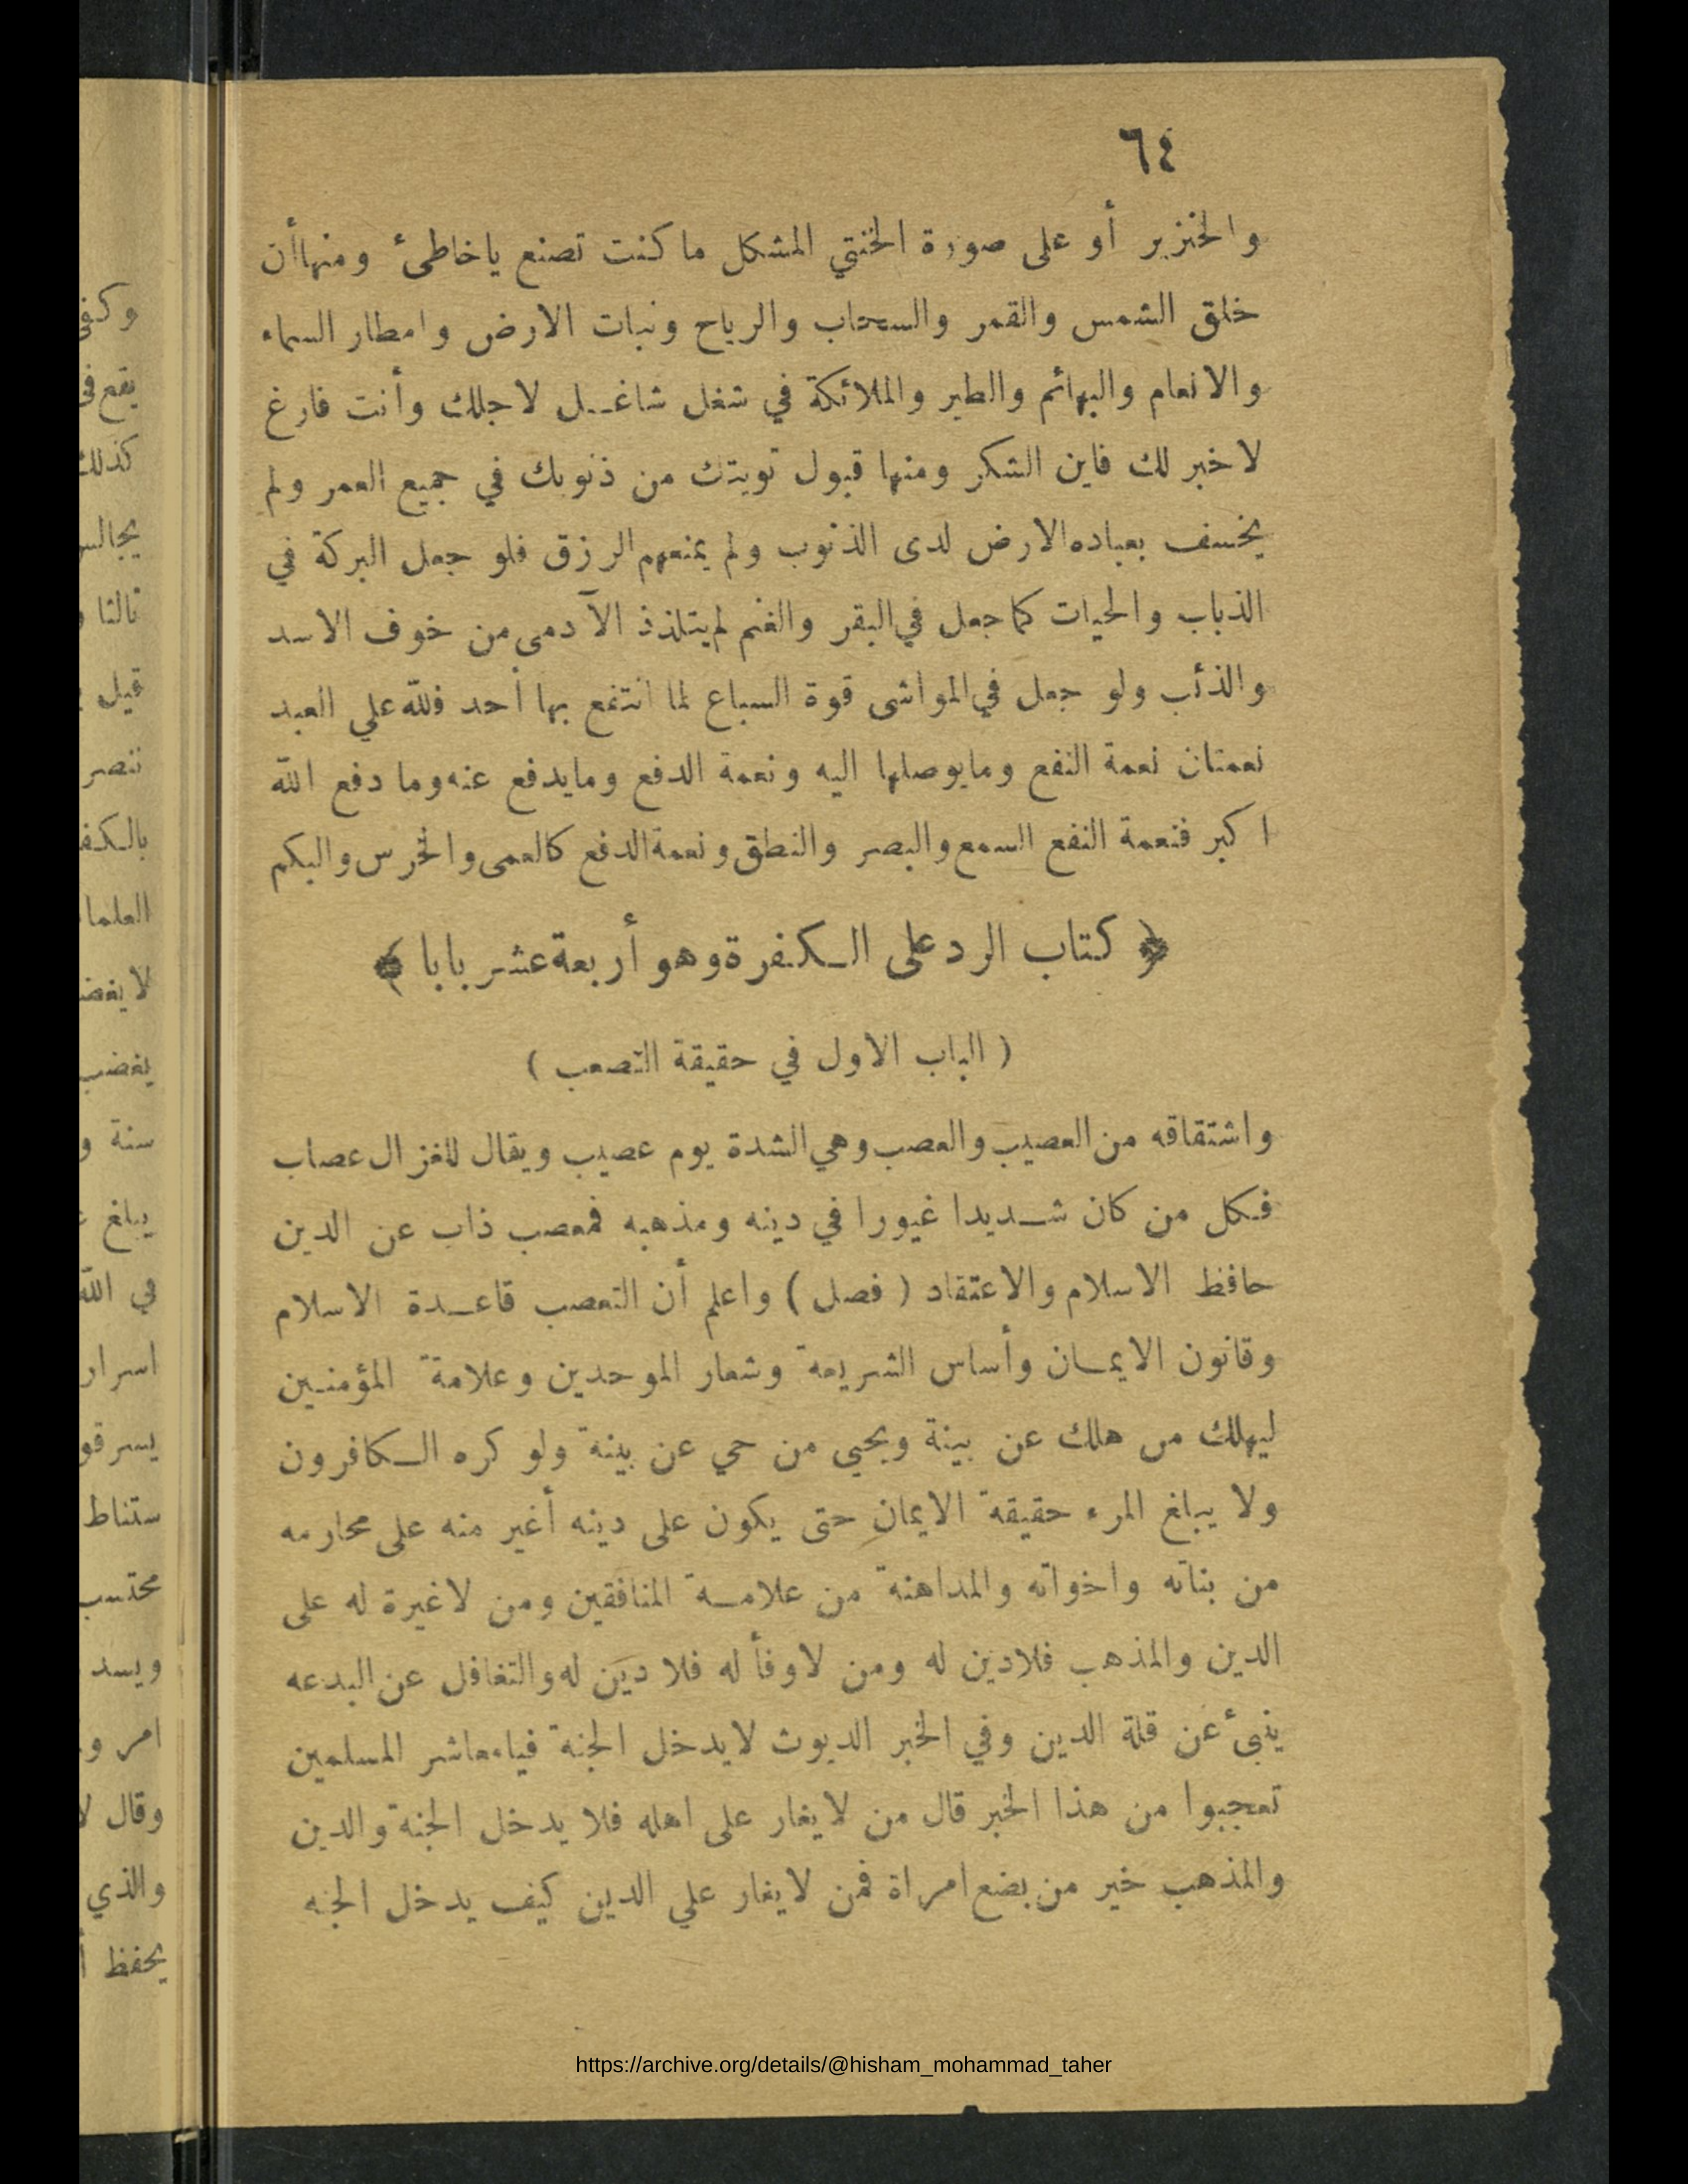 ٦٤
والخنزير أو على صورة الخنثي المشكل ما كنت تصنع ياخاطئ ومنهاأن
خلق الشمس والقمر والسحاب والرياح ونبات الارض وامطار السماء
والانعام والبهائم والطير والملائكة في شغل شاغل لاجلك وأنت فارغ
لاخبر لك فاين الشكر ومنها قبول توبتك من ذنوبك في جميع العمر ولم
يخسف بعباده الارض لدى الذنوب ولم يمنعهم الرزق فلو جعل البركة في
الذباب والحيات كما جعل في البقر والغنم لم يتلذذ الآدمي من خوف الاسد
والذئب ولو جعل في المواشى قوة السباع لما انتفع بها أحد فلله علي العبد
نعمتان نعمة النفع ومايوصلها اليه ونعمة الدفع ومايدفع عنه وما دفع الله
اكبر فنعمة النفع السمع والبصر والنطق ونعمة الدفع كالعمى والخرس والبكم
﴿ كتاب الرد على الكفرة وهو أربعة عشر بابا ﴾
( الباب الاول في حقيقة التصعب )
واشتقاقه من العصيب والعصب وهي الشدة يوم عصيب ويقال للغزال عصاب
فكل من كان شديدا غيورا في دينه ومذهبه فمعصب ذاب عن الدين
حافظ الاسلام والاعتقاد ( فصل ) واعلم أن التعصب قاعدة الاسلام
وقانون الايمان وأساس الشريعة وشعار الموحدين وعلامة المؤمنين
ليهلك من هلك عن بينة ويحيى من حي عن بينة ولو كره الكافرون
ولا يبلغ المرء حقيقة الايمان حتى يكون على دينه أغير منه على محارمه
من بناته واخواته والمداهنة من علامة المنافقين ومن لاغيرة له على
الدين والمذهب فلادين له ومن لاوفأ له فلا دين له والتغافل عن البدعه
ينبئ عن قلة الدين وفي الخبر الديوث لايدخل الجنة فيامعاشر المسلمين
تعجبوا من هذا الخبر قال من لايغار على اهله فلا يدخل الجنة والدين
والمذهب خير من بضع امراة فمن لايغار علي الدين كيف يدخل الجنه
وكفى
يقع في
كذلك
يجالس
ثالثا
قيل
ننصر
العلما
يغضب
سنة و
يبلغ
في الله
اسرار
محتسب
ويسد
امر و
وقال لا
والذي
يحفظ أ
https://archive.org/details/@hisham_mohammad_taher